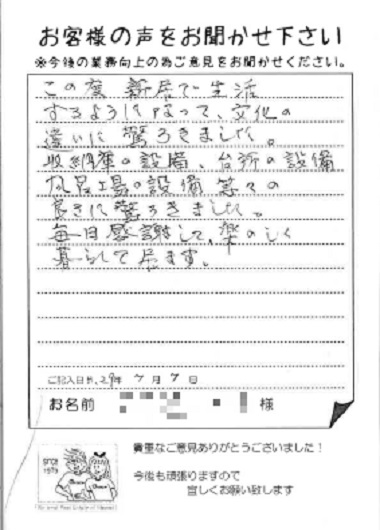 お客様の声をお聞かせ下さい
※今後の業務向上の為ご意見をお聞かせください。
この度 新居で生活
するようになって、文化の
違いに驚ろきました。
収納庫の設備、台所の設備
風呂工場の設備 等々の
良さに驚ろきました。
毎日感謝して、楽のしく
暮らして居ます。
ご記入日 H.29年 7月 7日
お名前 様
貴重なご意見ありがとうございました！
今後も頑張りますので
宜しくお願い致します
SINCE
1979